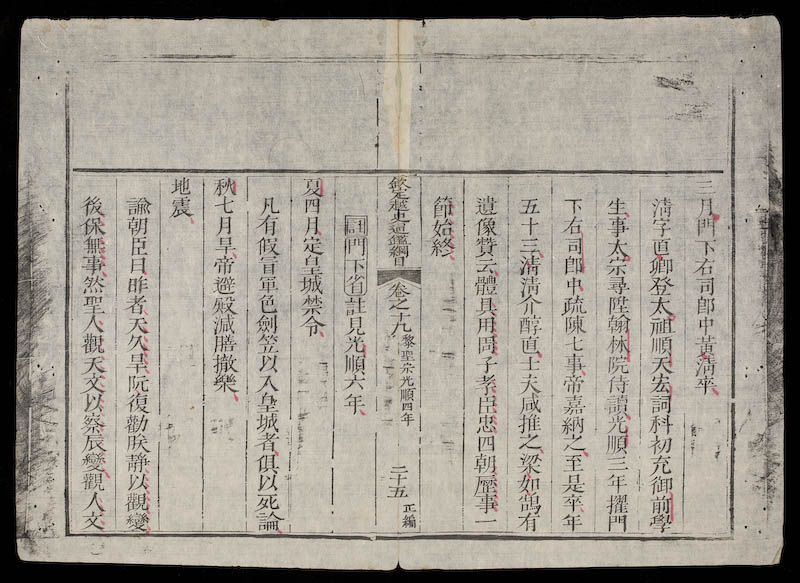 三月門下右司郎中黃清卒
清字直卿登太祖順天宏詞科初充御前學
生事太宗尋陞翰林院侍讀光順三年擢門
下右司郎中疏陳七事帝嘉納之至是卒年
五十三清清介醇直士夫咸推之梁如鵠有
遺像贊云體具用周子孝臣忠四朝歷事一
節始終
註門下省註見光順六年
欽定越史通鑑綱目 卷之十九 黎聖宗光順四年 二十五 正編
夏四月定皇城禁令
凡有假冒軍色劍笠以入皇城者俱以死論
秋七月旱帝避殿減膳撤樂
地震
諭朝臣曰昨者天久旱阮復勸朕靜以觀變
後保無事然聖人觀天文以察辰變觀人文